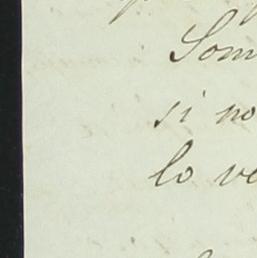 Som
si no
lo ve